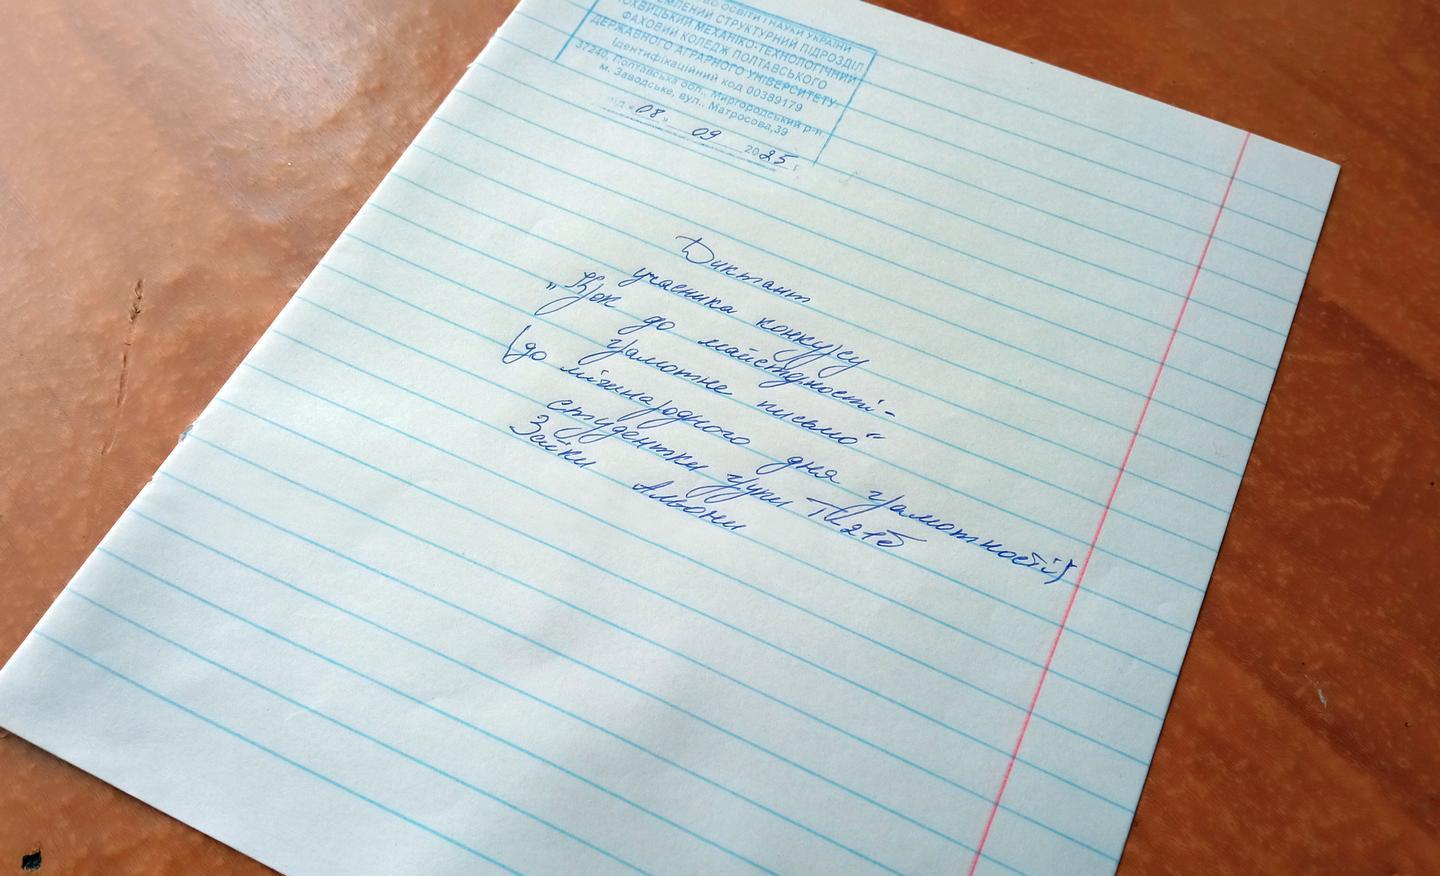 ОСВІТИ І НАУКИ УКРАЇНИ
СТРУКТУРНИЙ ПІДРОЗДІЛ
МЕХАНІКО-ТЕХНОЛОГІЧНИЙ
ФАХОВИЙ КОЛЕДЖ ПОЛТАВСЬКОГО
ДЕРЖАВНОГО АГРАРНОГО УНІВЕРСИТЕТУ
Ідентифікаційний код 00389179
37240, Полтавська обл., Миргородський р-н
м. Заводське, вул.. Матросова,39
від «08» 09 2025 г
Диктант
учасника конкурсу
„Крок до майстерності-
грамотне письмо“
(до міжнародного дня грамотності)
студентки групи ТК21б
Зейки Альони